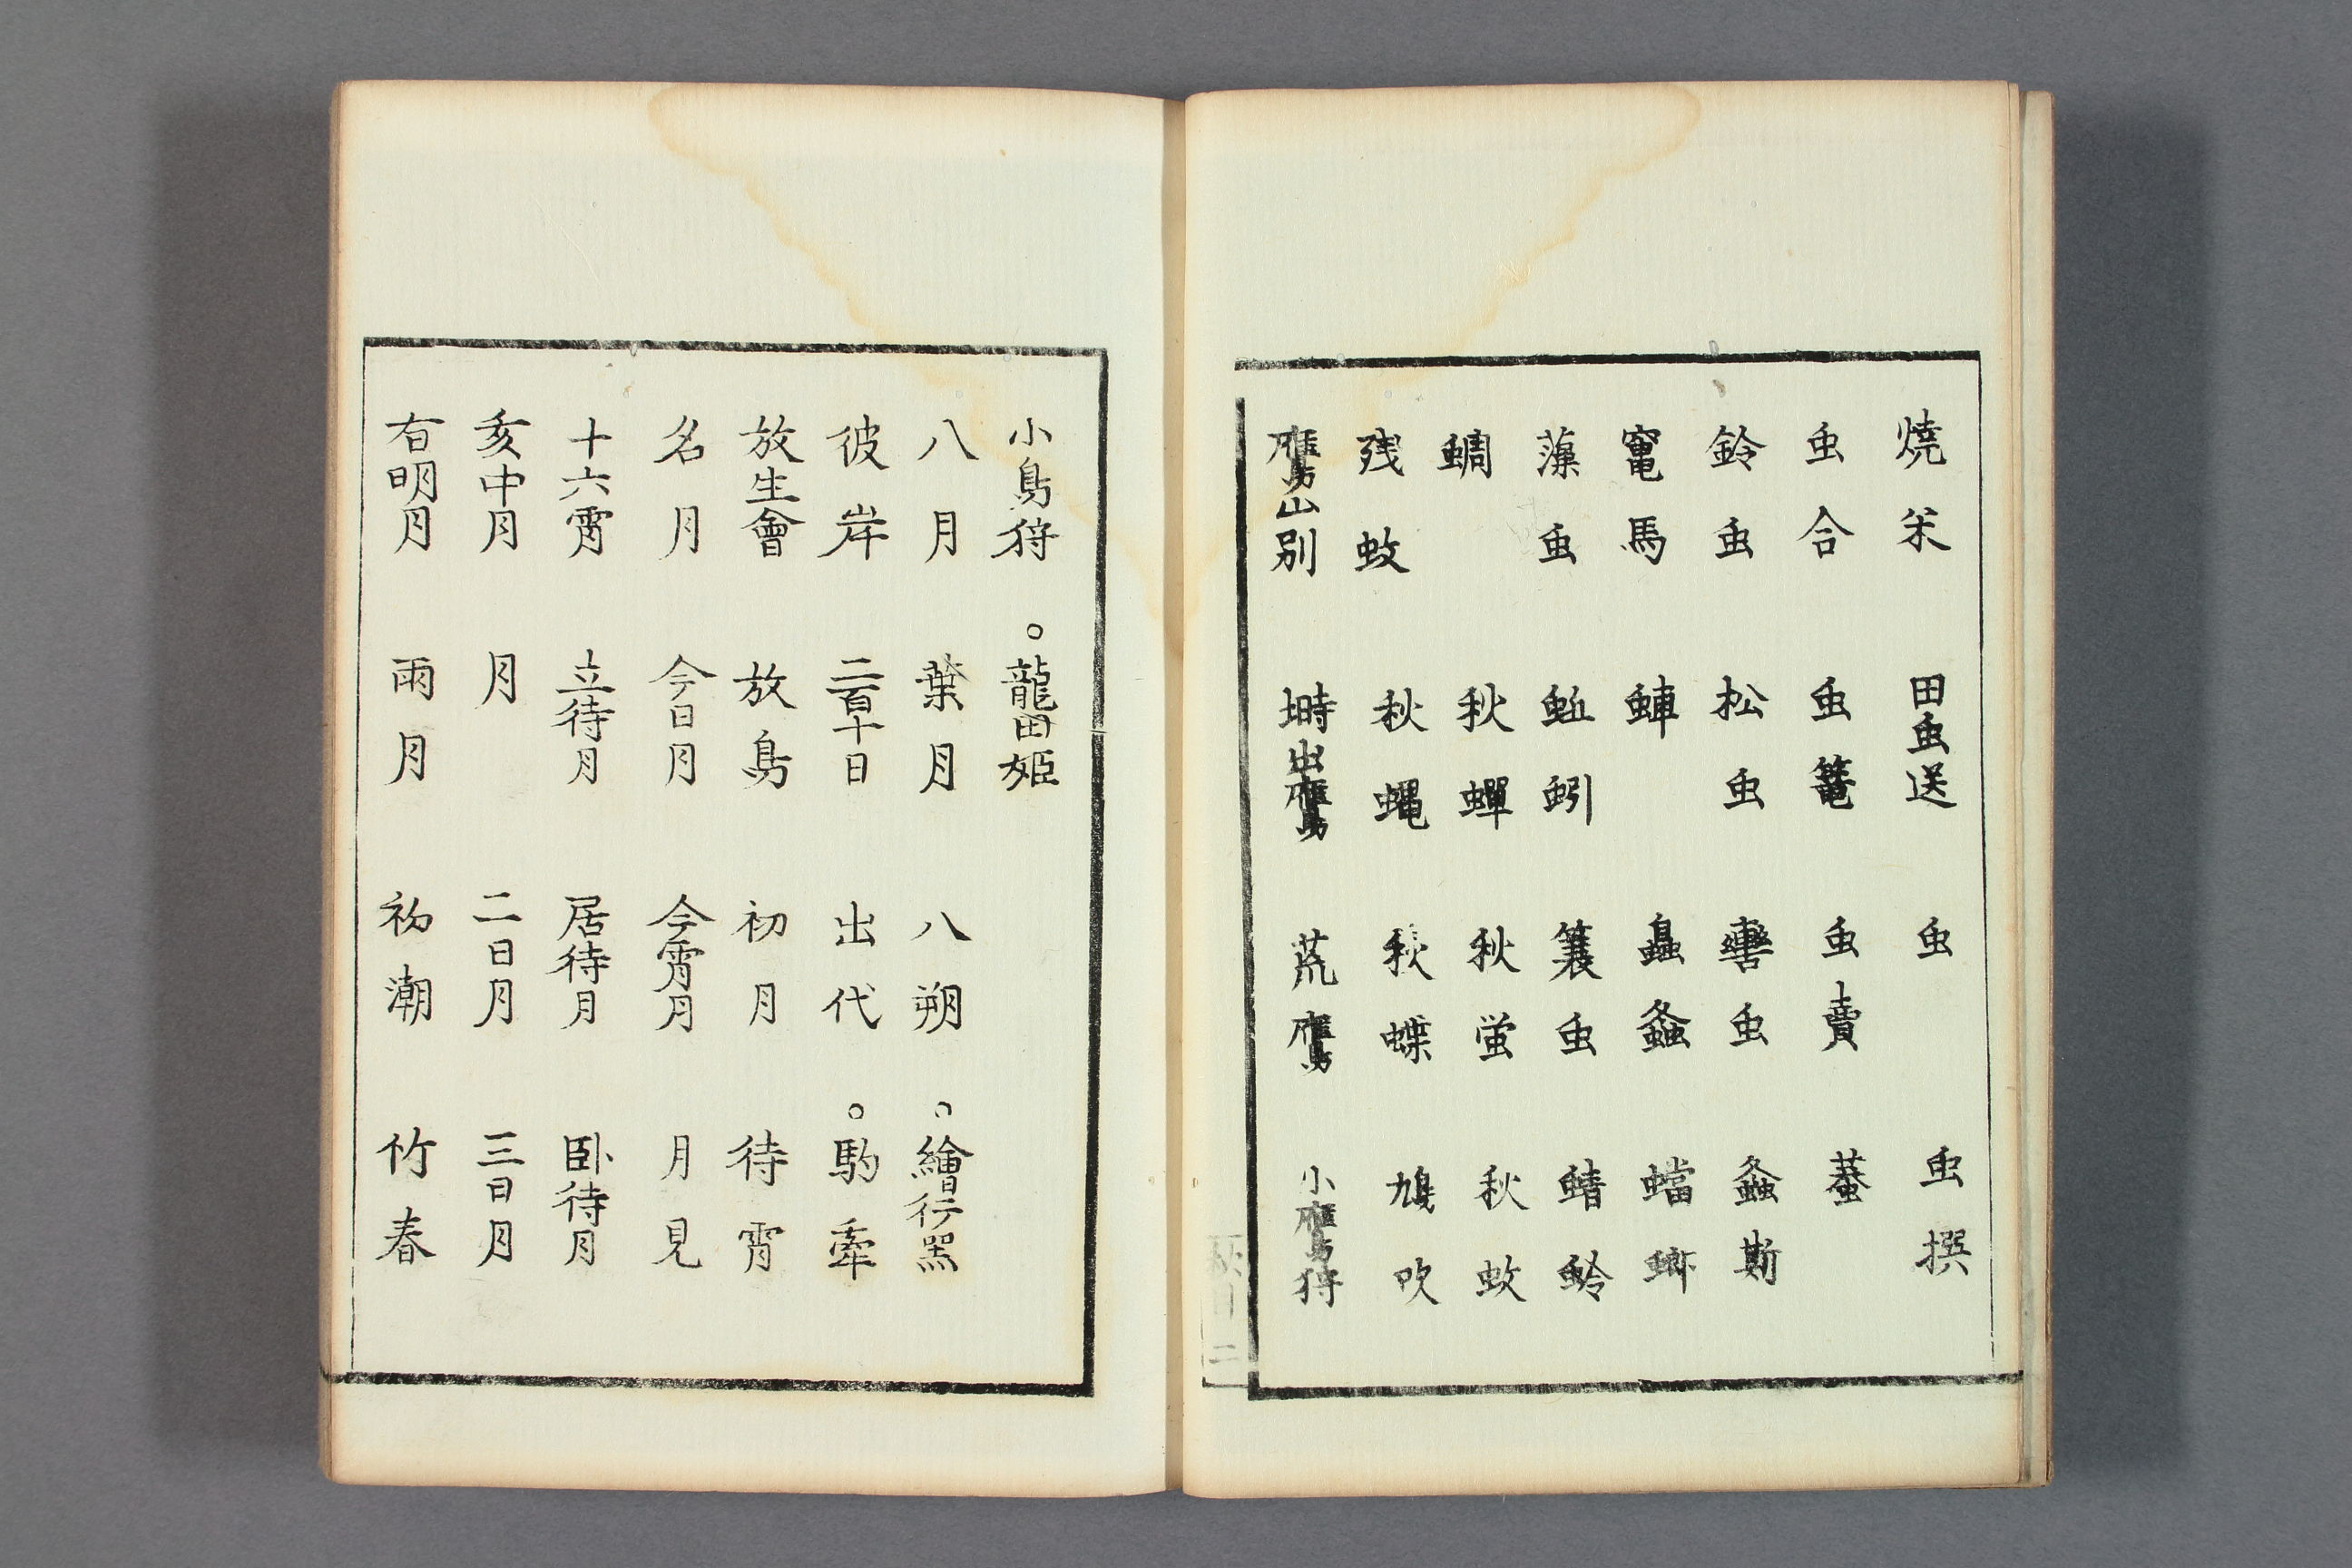 燒米　田虫送　虫　虫撰
虫合　虫篭　虫賣　蟇
鈴虫　松虫　轡虫　螽斯
竃馬　　　　　螽　蟷螂
藻虫　蚯蚓　簑虫　蜻蛉
蜩　秋蟬　秋蛍　秋蚊
残蚊　秋蠅　秋蝶　鳩吹
鷹山別　塒出鷹　荒鷹　小鷹狩
小鳥狩　○龍田姫
八月　葉月　八朔　○繪行器
彼岸　二百十日　出代　○駒牽
放生會　放鳥　初月　待宵
名月　今日月　今宵月　月見
十六宵　立待月　居待月　臥待月
亥中月　月　二日月　三日月
有明月　雨月　初潮　竹春